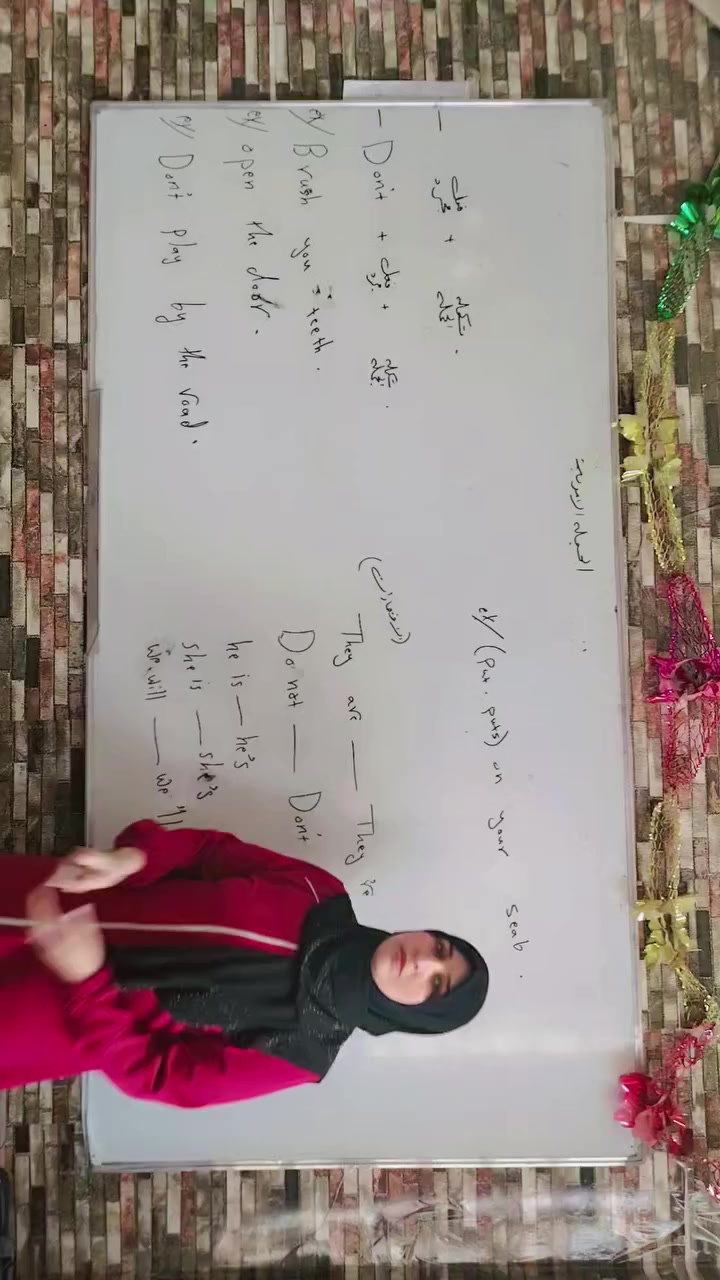 الجملة الامرية
– فعل مجرد + تكملة الجملة .
– Don't + فعل مجرد + تكملة الجملة .
ex/ Brush you teeth .
ex/ open the door .
ex/ Don't play by the road .
ex/ (put . puts) on your seab .
(اختصارات)
They are — They're
Do not — Don't
he is — he's
she is — she's
we will — we'll